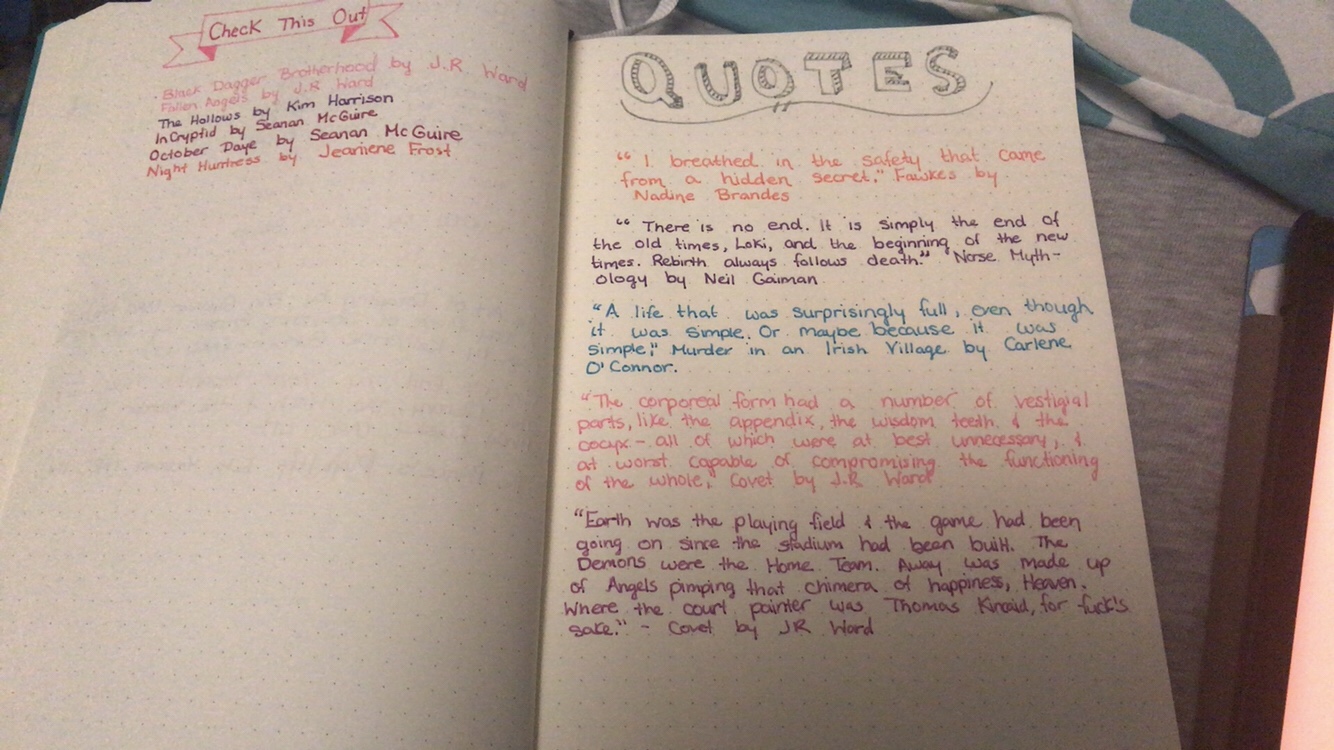 Check This Out
. Black Dagger Brotherhood by J.R. Ward
Fallen Angels by J.R Ward
The Hollows by Kim Harrison
InCryptid by Seanan McGuire
October Daye by Seanan McGuire
Night Huntress by Jeaniene Frost
QUOTES
“ I breathed in the safety that came
from a hidden secret." Fawkes by
Nadine Brandes
“ There is no end. It is simply the end of
the old times, Loki, and the beginning of the new
times. Rebirth always follows death." Norse Myth-
ology by Neil Gaiman
“A life that was surprisingly full, even though
it was simple. Or maybe because it was
simple." Murder in an Irish Village by Carlene
O'Connor.
“The corporeal form had a number of vestigial
parts, like the appendix, the wisdom teeth & the
- all of which were at best unnecessary, &
at worst capable of compromising the functioning
of the whole," Covet by J.R Ward
“Earth was the playing field & the game had been
going on since the stadium had been built. The
Demons were the Home Team. Away was made up
of Angels pimping that chimera of happiness, Heaven.
Where the court painter was Thomas Kincaid, for fuck's
sake." - Covet by JR Ward